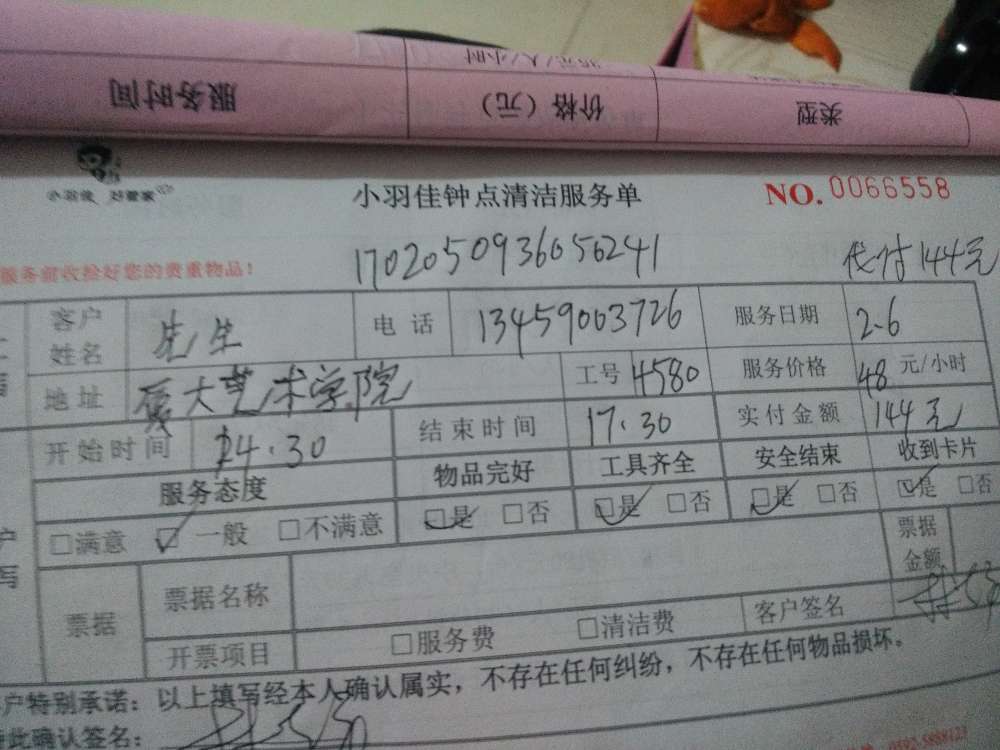 25元/人/小时
服务时间 价格（元） 类型
小羽佳 好管家
小羽佳钟点清洁服务单 NO. 0066558
服务前收捡好您的贵重物品！
1702050936056241 代付144元
客户姓名 先生 电话 13459003726 服务日期 2.6
地址 厦大艺术学院 工号 4580 服务价格 48元/小时
开始时间 14.30 结束时间 17.30 实付金额 144元
服务态度 物品完好 工具齐全 安全结束 收到卡片
□满意 ☑一般 □不满意 ☑是 □否 ☑是 □否 ☑是 □否 ☑是 □否
票据 票据名称 票据金额
开票项目 □服务费 □清洁费 客户签名
户特别承诺：以上填写经本人确认属实，不存在任何纠纷，不存在任何物品损坏。
此确认签名：